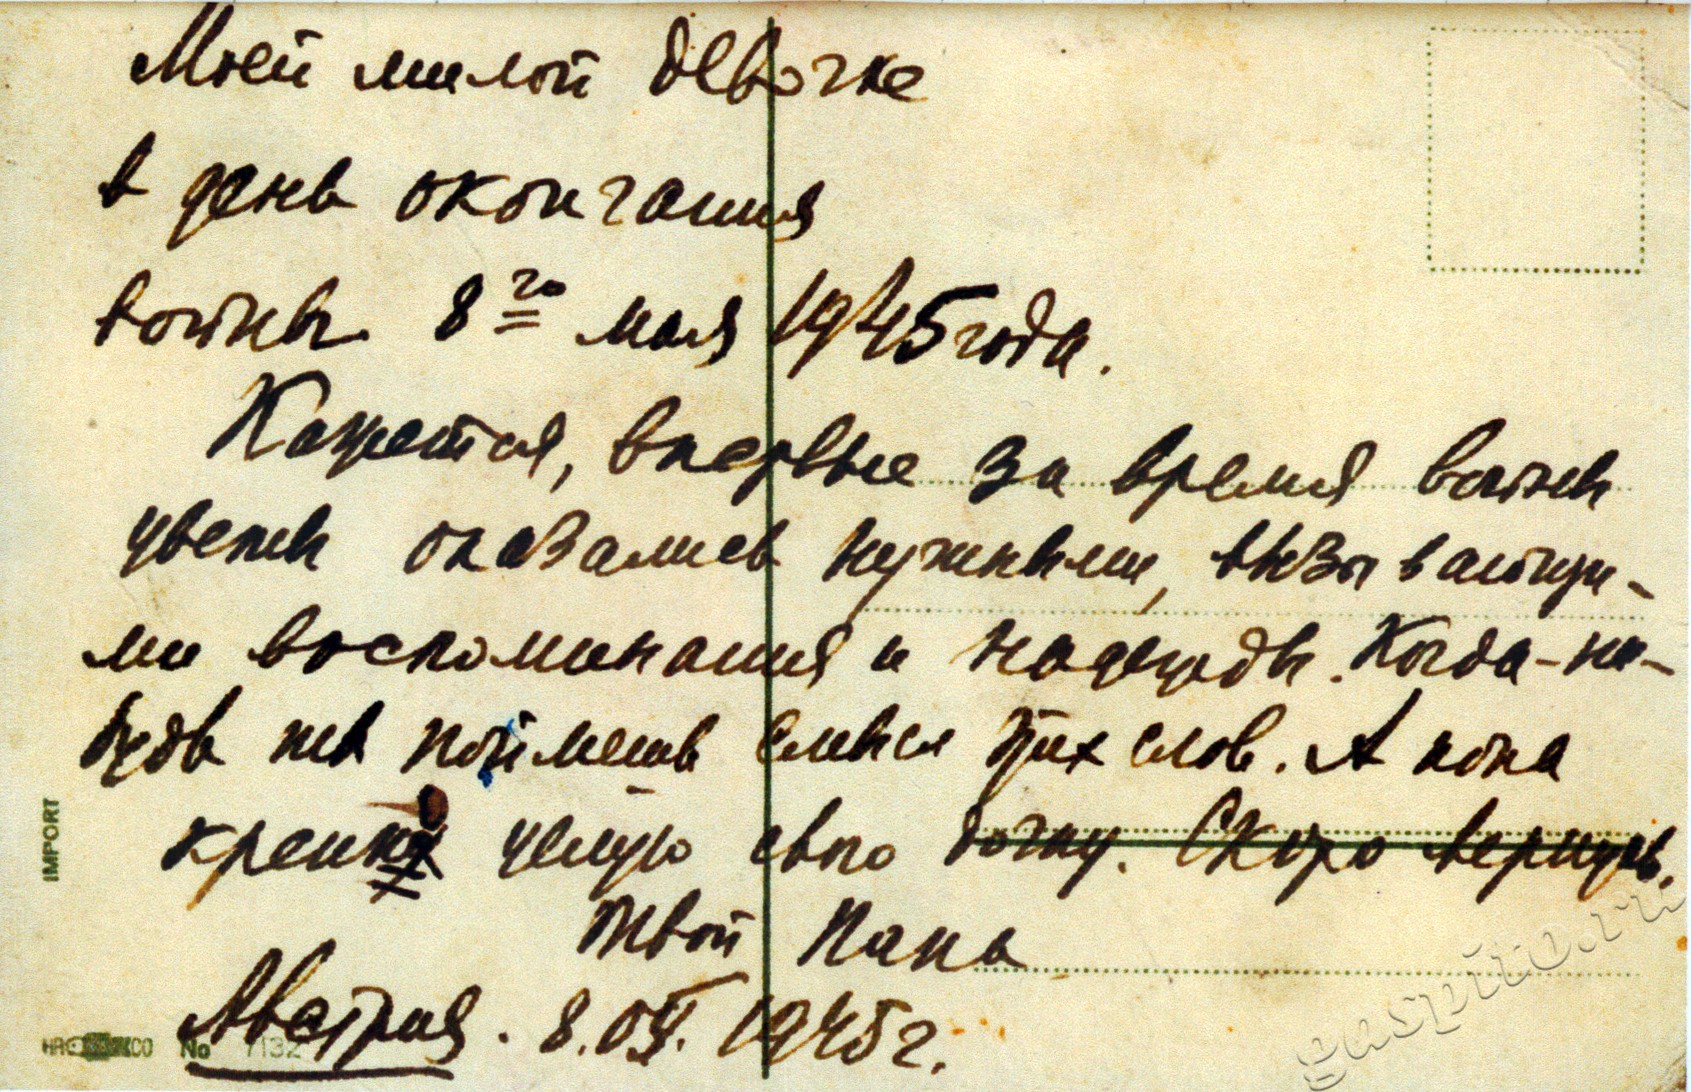 Моей милой девочке
в день окончания
войны 8го мая 1945 года.
Кажется, впервые за время войны
цветы оказались нужными, вызывающи-
ми воспоминания и надежды. Когда-ни-
будь ты поймешь смысл этих слов. А пока
крепко целую свою дочку. Скоро вернусь.
Твой Папа
Австрия. 8.05. 1945 г.
IMPORT
No 7132
gaspito.ru